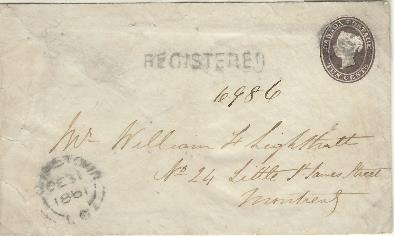 CANADA POSTAGE
TEN CENTS
REGISTERED
6986
Mr William F Lighthall
No 24 Little St James Street
Montreal
DE 31
1861